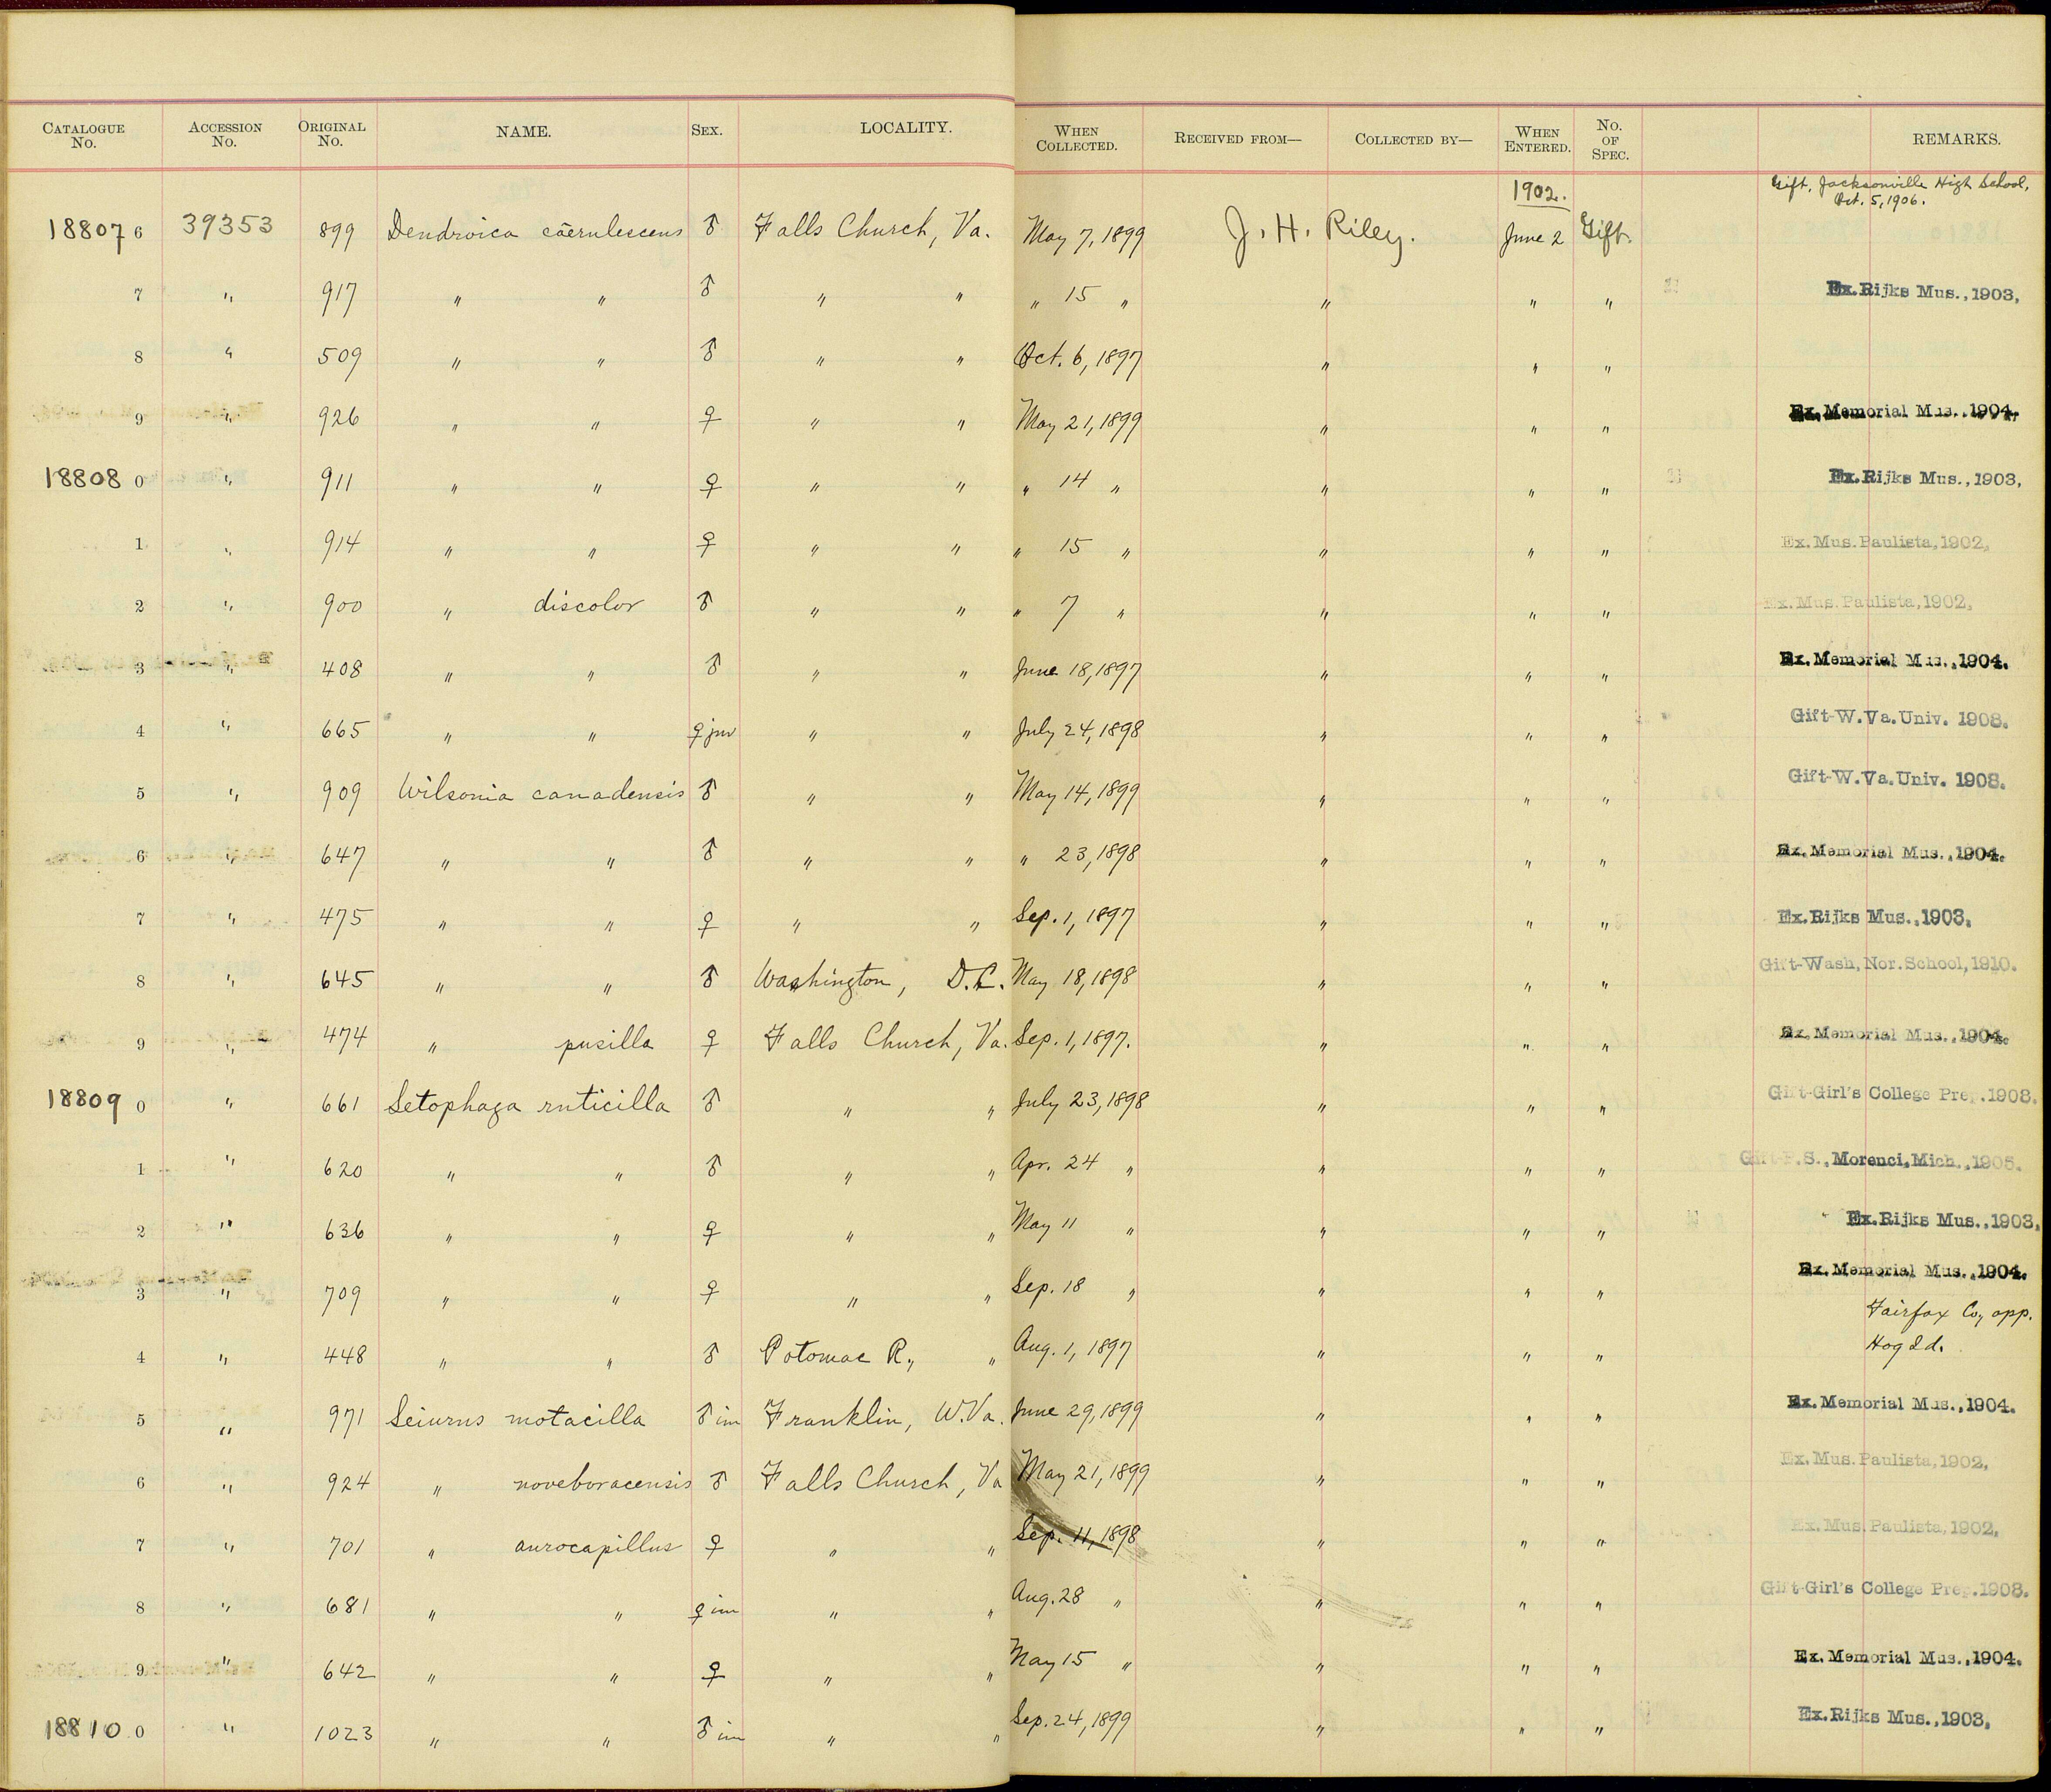 CATALOGUE No. ACCESSION No. ORIGINAL No. NAME. SEX. LOCALITY. WHEN COLLECTED. RECEIVED FROM— COLLECTED BY— WHEN ENTERED. No. OF SPEC. REMARKS.
1902. Gift, Jacksonville High School, Oct. 5, 1906.
18807 6 39353 899 Dendroica caerulescens ♂ Falls Church, Va. May 7, 1899 J. H. Riley. June 2 Gift.
7 " 917 " " ♂ " " " 15 " " " " Ex. Rijks Mus., 1903,
8 " 509 " " ♂ " " Oct. 6, 1897 " " "
9 " 926 " " ♀ " " May 21, 1899 " " " Ex. Memorial Mus., 1904.
18808 0 " 911 " " ♀ " " " 14 " " " " Ex. Rijks Mus., 1903,
1 " 914 " " ♀ " " " 15 " " " " Ex. Mus. Paulista, 1902,
2 " 900 " discolor ♂ " " " 7 " " " " Ex. Mus. Paulista, 1902,
3 " 408 " " ♂ " " June 18, 1897 " " " Ex. Memorial Mus., 1904.
4 " 665 " " ♀ juv " " July 24, 1898 " " " Gift-W. Va. Univ. 1908.
5 " 909 Wilsonia canadensis ♂ " " May 14, 1899 " " " Gift-W. Va. Univ. 1908.
6 " 647 " " ♂ " " " 23, 1898 " " " Ex. Memorial Mus., 1904.
7 " 475 " " ♀ " " Sep. 1, 1897 " " " Ex. Rijks Mus., 1903,
8 " 645 " " ♂ Washington, D.C. May 18, 1898 " " " Gift-Wash, Nor. School, 1910.
9 " 474 " pusilla ♀ Falls Church, Va. Sep. 1, 1897. " " " Ex. Memorial Mus., 1904.
18809 0 " 661 Setophaga ruticilla ♂ " " July 23, 1898 " " " Gift-Girl's College Prep. 1908.
1 " 620 " " ♂ " " Apr. 24 " " " " Gift-P.S., Morenci, Mich., 1905.
2 " 636 " " ♀ " " May 11 " " " " Ex. Rijks Mus., 1903,
3 " 709 " " ♀ " " Sep. 18 " " " " Ex. Memorial Mus., 1904.
4 " 448 " " ♂ Potomac R., " Aug. 1, 1897 " " " Fairfax Co., opp. Hog Id.
5 " 971 Seiurus motacilla ♂ im Franklin, W. Va. June 29, 1899 " " " Ex. Memorial Mus., 1904.
6 " 924 " noveboracensis ♂ Falls Church, Va May 21, 1899 " " " Ex. Mus. Paulista, 1902,
7 " 701 " aurocapillus ♀ " " Sep. 11, 1898 " " " Ex. Mus. Paulista, 1902,
8 " 681 " " ♀ im " " Aug. 28 " " " " Gift-Girl's College Prep. 1908.
9 " 642 " " ♀ " " May 15 " " " " Ex. Memorial Mus., 1904.
18810 0 " 1023 " " ♂ im " " Sep. 24, 1899 " " " Ex. Rijks Mus., 1903,